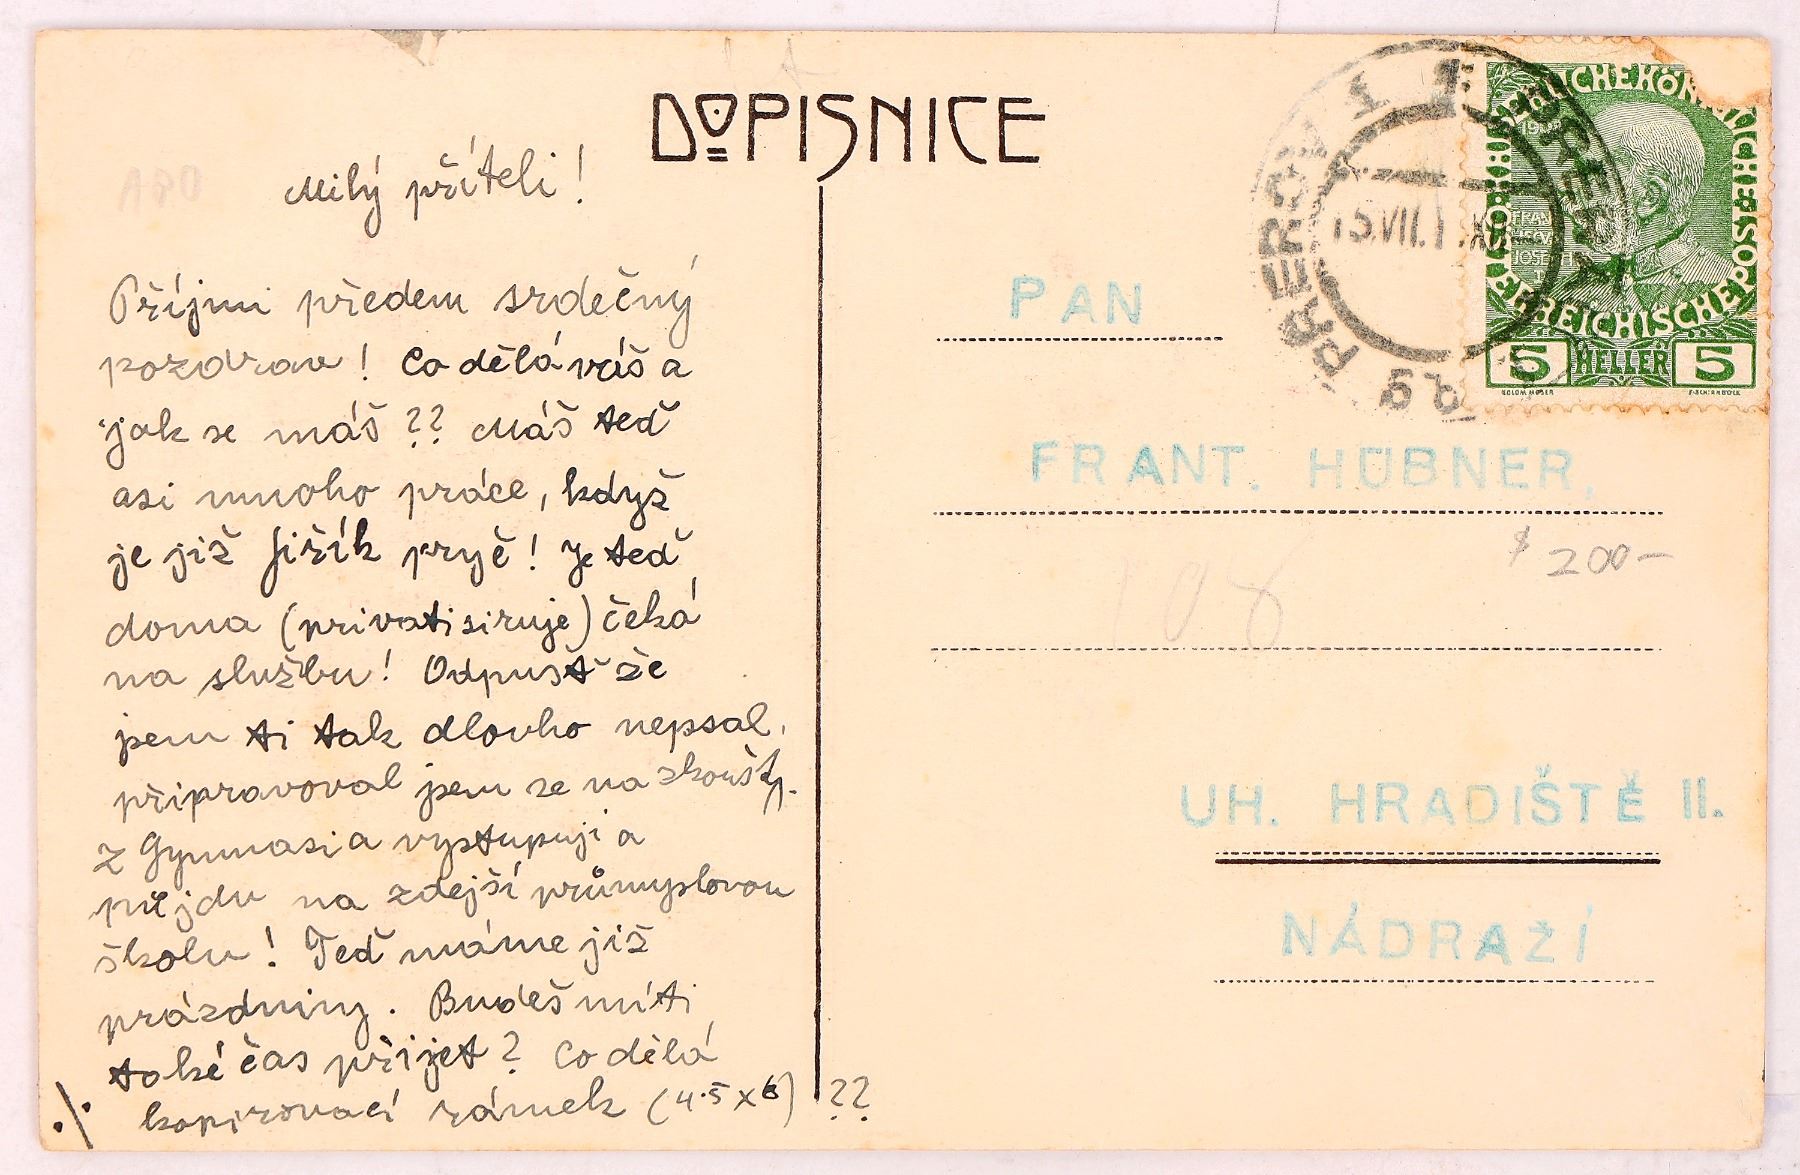 DOPISNICE
Milý příteli!
Příjmi předem srdečný
pozdrav! Co dělá váš a
jak se máš?? Máš teď
asi mnoho práce, když
je již Jiřík pryč! Je teď
doma (privatisiruje) čeká
na službu! Odpusť že
jsem ti tak dlouho nepsal,
připravoval jsem se na zkoušky.
Z Gymnasia vystupuji a
půjdu na zdejší průmyslovou
školu! Teď máme již
prázdniny. Budeš míti
také čas přijet? Co dělá
kopirovací rámek (4·5 x 6) ??
·/·
PŘEROV 1
PRERAU 1
15.VII.1
5b
KAISERLICHE KÖNIGLICHE ÖSTERREICHISCHE POST
FRANZ
JOSEF
I
5 HELLER 5
KOLOM. MOSER
PAN
FRANT. HÜBNER,
$ 200-
108
UH. HRADIŠTĚ II.
NÁDRAŽÍ